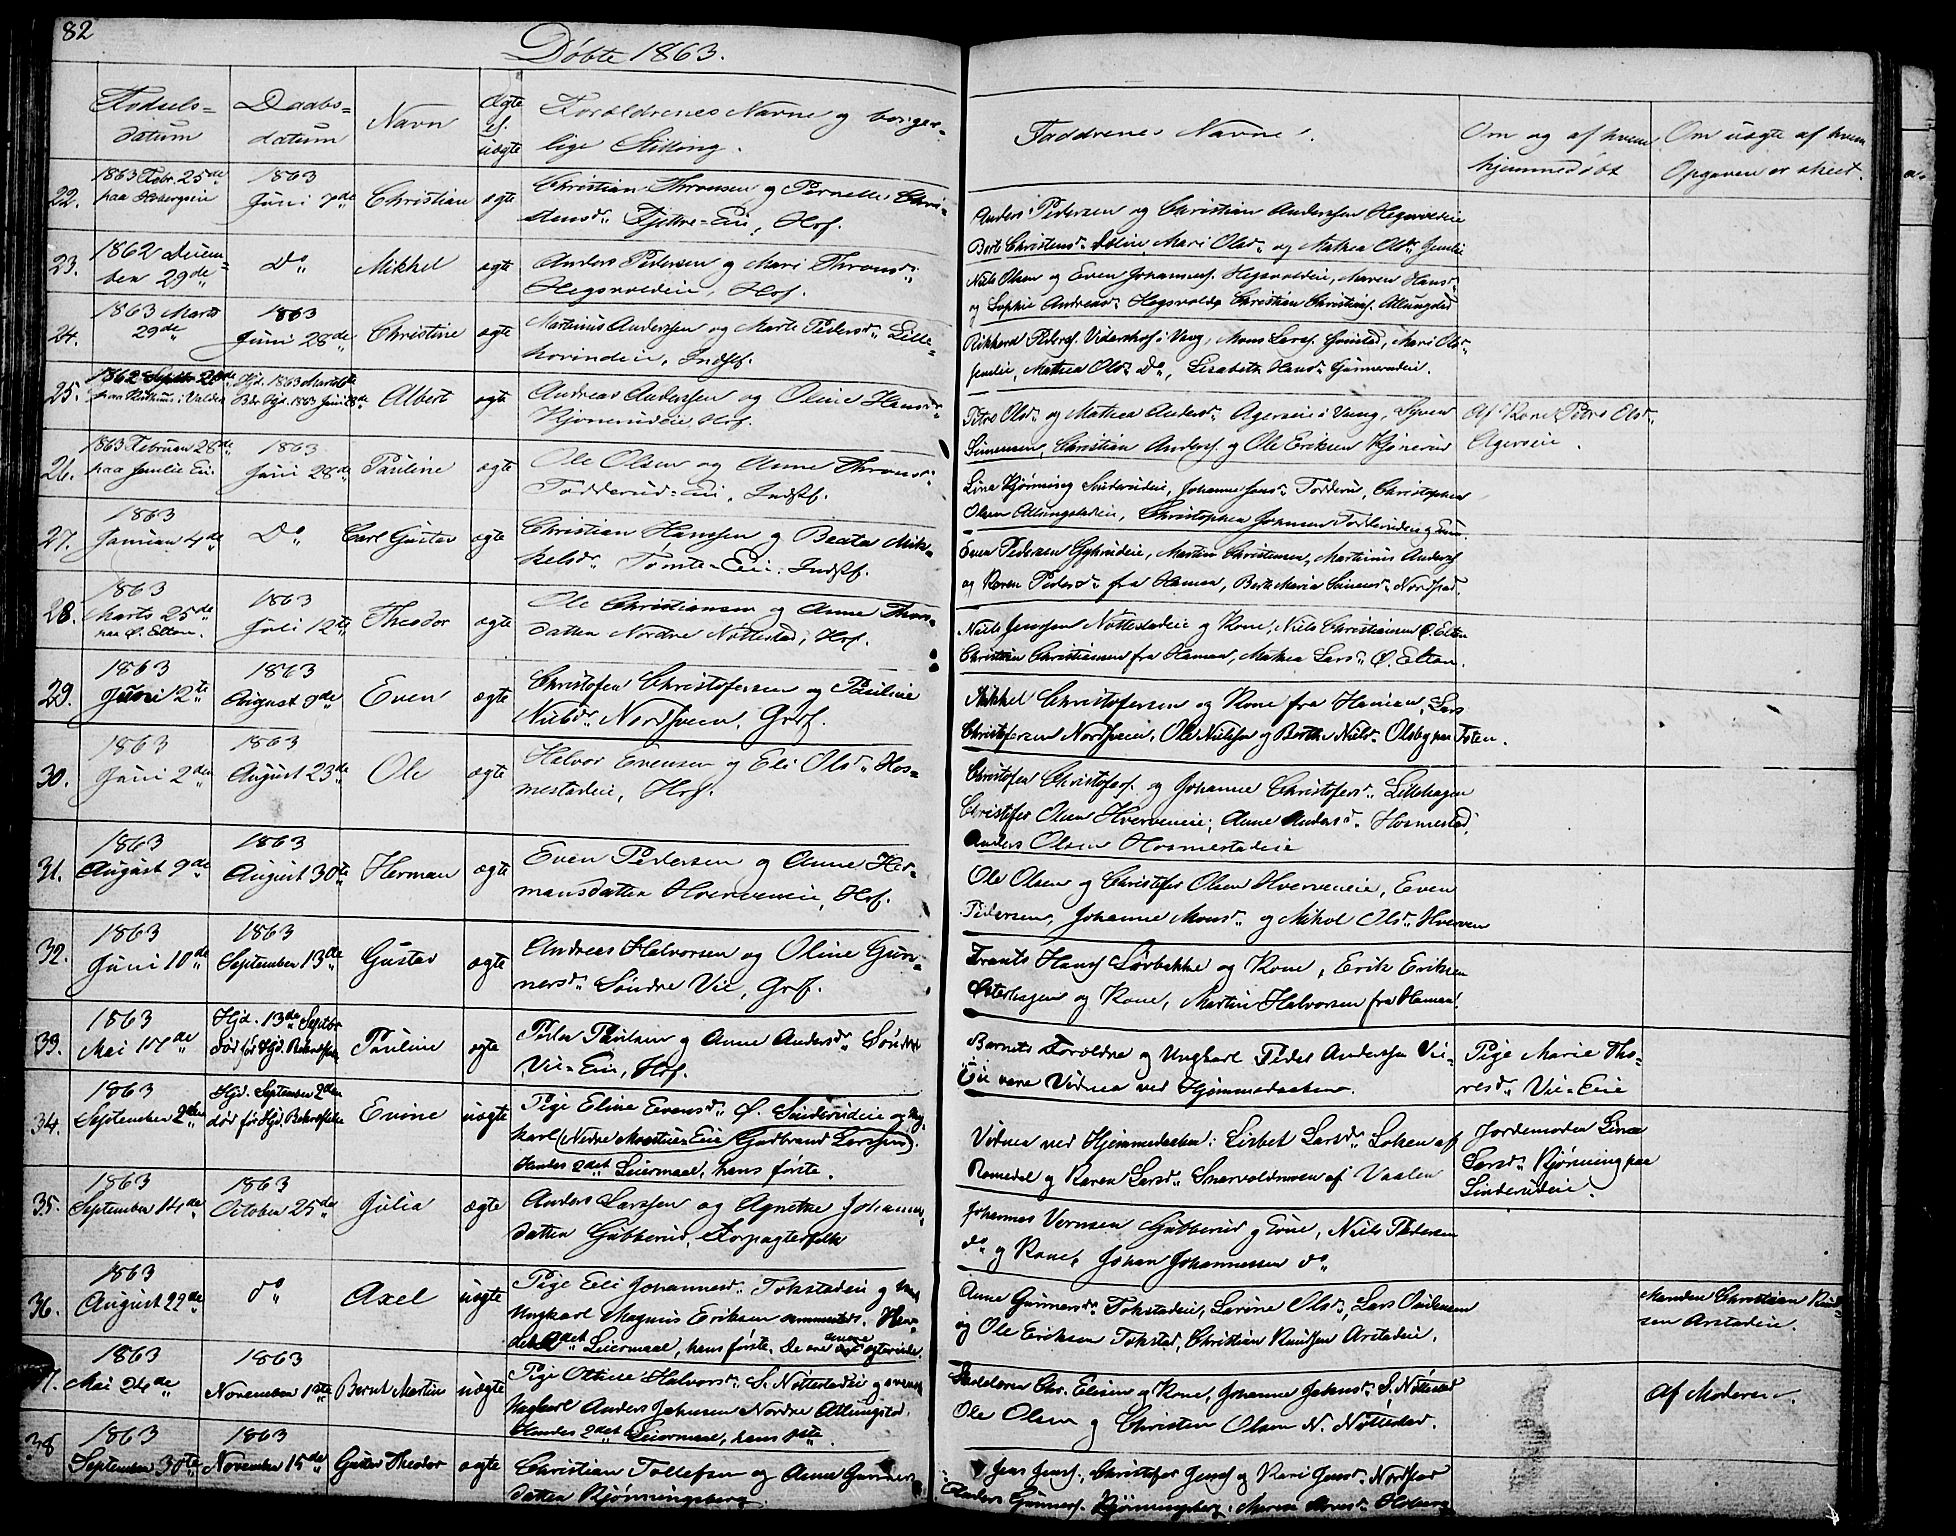 82
Døbte 1863.
Fødsels=
datum
Daabs=
datum
Navn
Ægte
el.
uægte
Forældrenes Navne og borger=
lige Stilling.
Faddrenes Navne.
Om og af hvem
hjemmedøbt
Om uægte af hvem
Opgaven er skeet.
22.
1863 Febr. 25de
paa
1863
Juni 7de
Christian
ægte
Christian Thronsen og Pernelle Chri=
stensd. Eie, Hof.
Anders Pedersen og Christian Anderssen Hegsvoldeie
Berte Christensd. Mari Olsd. og Mathea Olsd. Jemlie
23.
1862 Decem=
ber 29de
Do
Mikkel
ægte
Anders Pedersen og Mari Thronsd.
Hegsvoldeie, Hof.
Niels Olsen og Even Johannesf. Hegsvoldeie, Maren Hansd.
og Sophie Andreasd. Hegsvold, Christian Christians. Atlungstad
24.
1863 Marts
29de
1863
Juni 28de
Christine
ægte
Martinus Anderssen og Marte Pedersd. Lille=
hovindeie, Indsf.
Rikkard Peders. i Vang, Mons Larsf. Mari Olsd.
Jemlie, Mathea Olsd. Do, Lisabeth Hansd. Gunnerudeie.
25.
1862 Septbr 20de
paa i Valdre
Hjd. 1863 Marts
Bek. Hjd. 1863 Juni 28de
Albert
ægte
Andreas Anderssen og Oline Hansd.
Kjønerudeie, Hof.
Petre Olsd. og Mathea Andersd. Agerseie i Vang, Syver
Simensen, Christian Andersf. og Ole Eriksen Kjønerud
Af Kone Petre Olsd.
Agerseie.
26.
1863 Februar 28de
paa Jemlie Eie
1863
Juni 28de
Pauline
ægte
Ole Olsen og Anne Thronsd.
Todderud=Eie, Indsf.
Lina Kjønning Sinderudeie, Johanne Jensd. Todderud, Christopher
Olsen Atlungstadeie, Christopher Johansen Todderudeie
27.
1863
Januar 4de
Do
Carl Gustav
ægte
Christian Hanssen og Beate Mik=
kelsd. Tomte=Eie, Indsf.
Even Pedersen Martin Christensen, Martinus Andersf.
og Karen Pedersd. fra Hamar, Berte Maria Simensd. Nordstad.
28.
1863
Marts 25de
paa Ø. Elton.
1863
Juli 12te
Theodor
ægte
Ole Christiansen og Anne Thors=
datter Nordre Nøttestad, Hof.
Niels Jenssen Nøttestadeie og Kone, Niels Christiansen Ø. Elton
Christian Christiansen fra Hamar, Mathea Larsd. Ø. Elton.
29.
1863
Juni 2te
1863
August 9de
Even
ægte
Christofer Christofersen og Pauline
Nielsd. Nordsveen, Grdf.
Mikkel Christofersen og Kone fra Hamar, Lars
Christofersen Nordsveen, Ole Nielsen og Berthe Nielsd. Olsby paa Toten.
30.
1863
Juni 2den
1863
August 23de
Ole
ægte
Halvor Evensen og Eli Olsd. Hos=
mestadeie, Hof.
Christofer Christofersf. og Johanne Christofersd. Lillehagen
Christofer Olsen Hverveneie, Anne Andersd. Hosmestad,
Anders Olsen Hosmestadeie
31.
1863
August 9de
1863
August 30te
Herman
ægte
Even Pedersen og Anne Her=
mansdatter Hverveneie, Hof.
Ole Olsen og Christofer Olsen Hverveneie, Even
Pedersen, Johanne Monsd. og Mikol Olsd. Hverven
32.
1863
Juni 10de
1863
September 13de
Gustav
ægte
Andreas Halvorsen og Oline Gun=
nersd. Søndre Vie, Grdf.
Frants Hansf. Sørbakke og Kone, Erik Eriksen
Østerhagen og Kone, Martin Halvorsen fra Hamar.
33.
1863
Mai 17de
Hjd. 13de Septbr
død før Hjd. Bekræftelse
Pauline
ægte
Peder Paulsen og Anne Andersd. Søndre
Vie=Eie, Hof.
Barnets Forældre og Ungkarl Peder Anderssen Vie=
Eie vare Vidner ved Hjemmedaaben.
Pige Marie Tho=
resd. Vie=Eie
34.
September 2den
Hjd. September 2den
død før Hjd. Bekræftelse
Evine
uægte
Pige Eline Evensd. Ø. Sinderudeie og Ung=
karl (Nedre Eie) Gudbrand Larssen.
Hendes 2det Leiermaal, hans første.
Vidner ved Hjemmedaaben: Lisbet Larsd. Loken af
Romedal og Karen Larsd. af Vaaler
Jordemoder Lina
Larsd. Kjønning paa
Sinderudeie.
35.
1863
September 14de
1863
October 25de
Julia
ægte
Anders Larssen og Agnethe Johannes
datter Gubberud, Forpagterfolk
Johannes Gubberud og Kone, Niels Pedersen
do og Kone, Johan Johannessen do
36.
1863
August 22de
do
Axel
uægte
Pige Eli Johannesd. Tokstadeie og
Ungkarl Magnus Eriksen ammestds. Hen=
des 2det Leiermaal, hans første. De ere
Anne Gunnersd. Tokstadeie, Larine Olsd., Lars
og Ole Eriksen Tokstad, Christian Knudsen Arstadeie.
Manden Christian Knud=
sen Arstadeie.
1863
Mai 24de
1863
November 1ste
Bernt Martin
uægte
Pige Oline Halvorsd. S. Nøttestadeie og
Ungkarl Anders Johnsen Nordre Atlungstad.
Hendes 2det Leiermaal, hans 1ste.
Chr. Elisen og Kone, Johanne Johnsd. S. Nøttestad
Ole Olsen og Christen Olsen N. Nøttestad.
Af Moderen.
38
1863
September 30te
1863
November 15de
Gustav Theodor
ægte
Christian Tollefsen og Anne Gunners
datter Kjønningsberg
Jens Jensf., Christofer Jensf. og Kari Jensd. Nordstad
Anders Gunnersf. Kjønningsberg, Maren